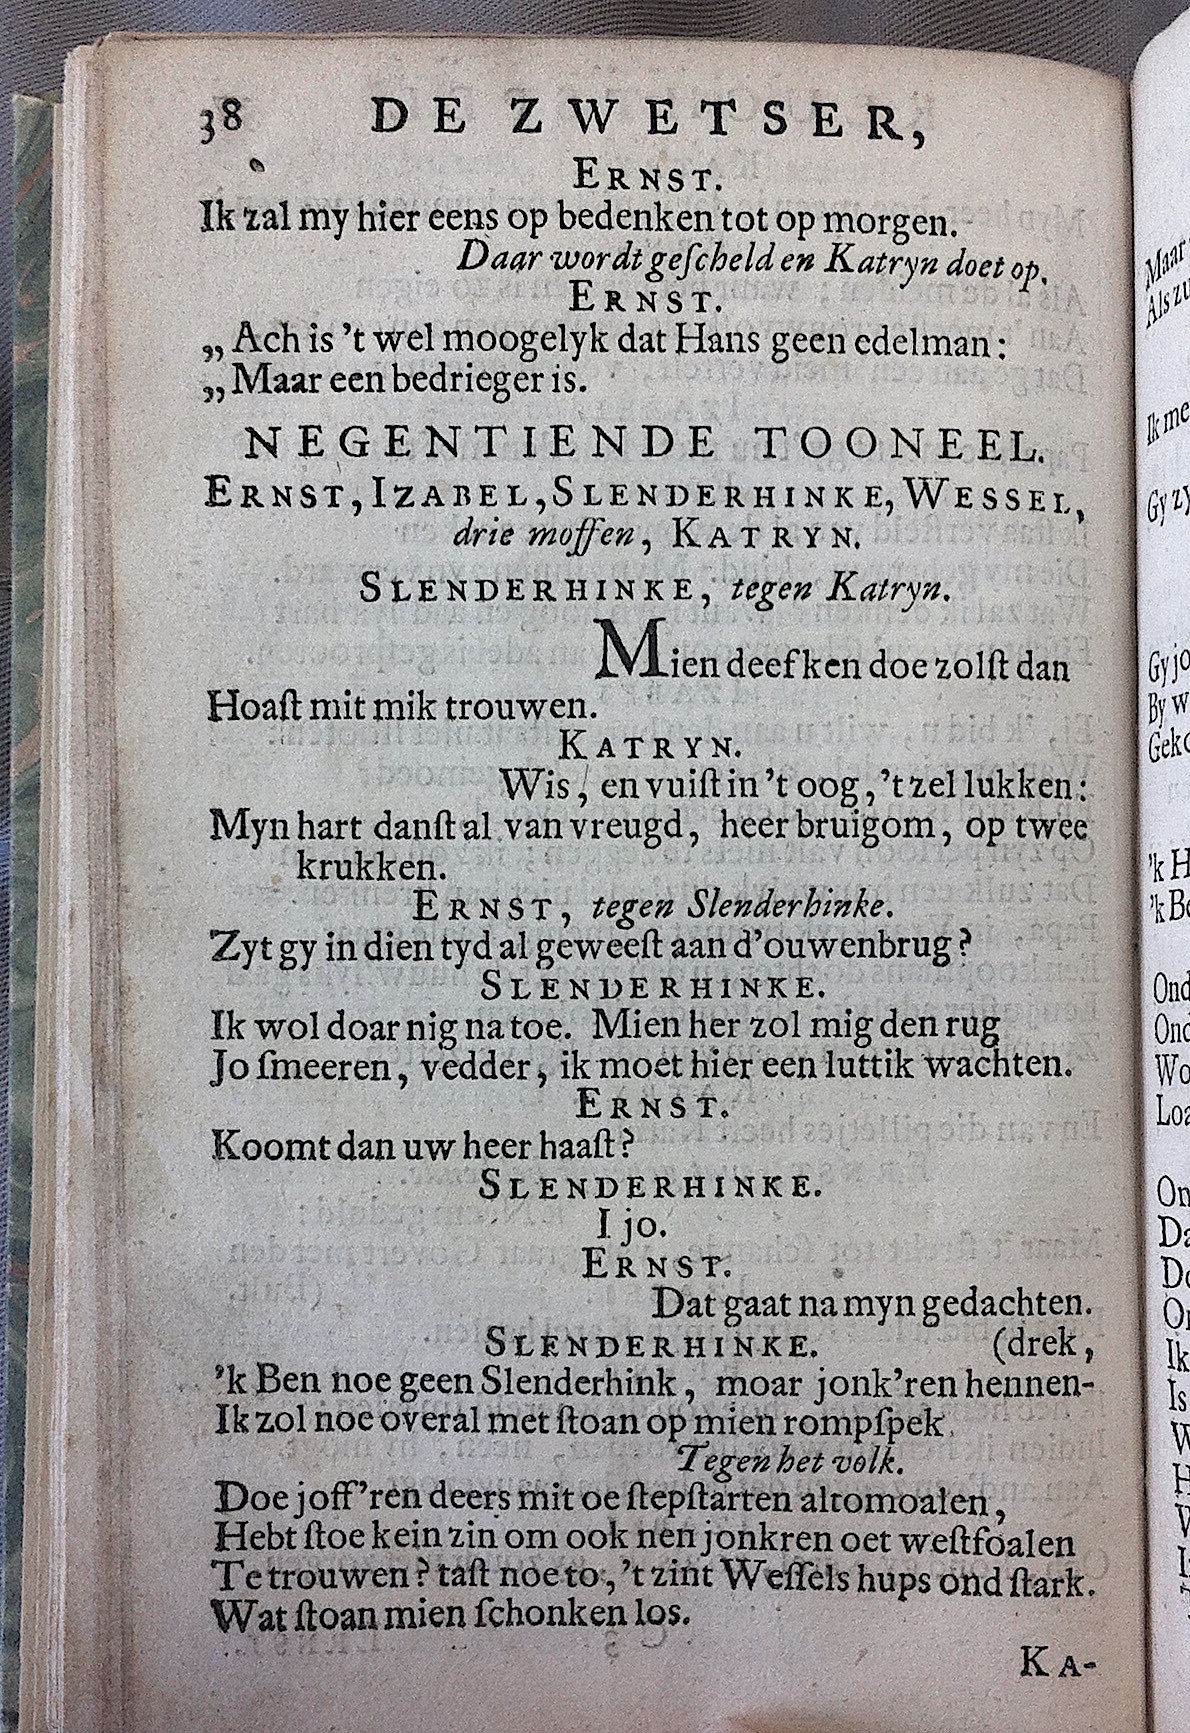 38 DE ZWETSER,
ERNST.
Ik zal my hier eens op bedenken tot op morgen.
Daar wordt geſcheld en Katryn doet op.
ERNST.
„ Ach is 't wel moogelyk dat Hans geen edelman:
„ Maar een bedrieger is.
NEGENTIENDE TOONEEL.
ERNST, IZABEL, SLENDERHINKE, WESSEL,
drie moffen, KATRYN.
SLENDERHINKE, tegen Katryn.
Mien deefken doe zolſt dan
Hoaſt mit mik trouwen.
KATRYN.
Wis, en vuiſt in 't oog, 't zel lukken:
Myn hart danſt al van vreugd, heer bruigom, op twee
krukken.
ERNST, tegen Slenderhinke.
Zyt gy in dien tyd al geweeſt aan d'ouwenbrug?
SLENDERHINKE.
Ik wol doar nig na toe. Mien her zol mig den rug
Jo ſmeeren, vedder, ik moet hier een luttik wachten.
ERNST.
Koomt dan uw heer haaſt?
SLENDERHINKE.
I jo.
ERNST.
Dat gaat na myn gedachten.
SLENDERHINKE. (drek,
'k Ben noe geen Slenderhink, moar jonk'ren hennen-
Ik zol noe overal met ſtoan op mien rompſpek.
Tegen het volk.
Doe joff'ren deers mit oe ſtepſtarten altomoalen,
Hebt ſtoe kein zin om ook nen jonkren oet weſtfoalen
Te trouwen? taſt noe to, 't zint Weſſels hups ond ſtark.
Wat ſtoan mien ſchonken los.
KA-
Maar
Als zu
Ik me
Gy zy
Gy jo
By w
Gekc
'k H
'k Be
Ond
Onc
Wo
Loa
On
Da
Do
Or
Ik
Is
W
H